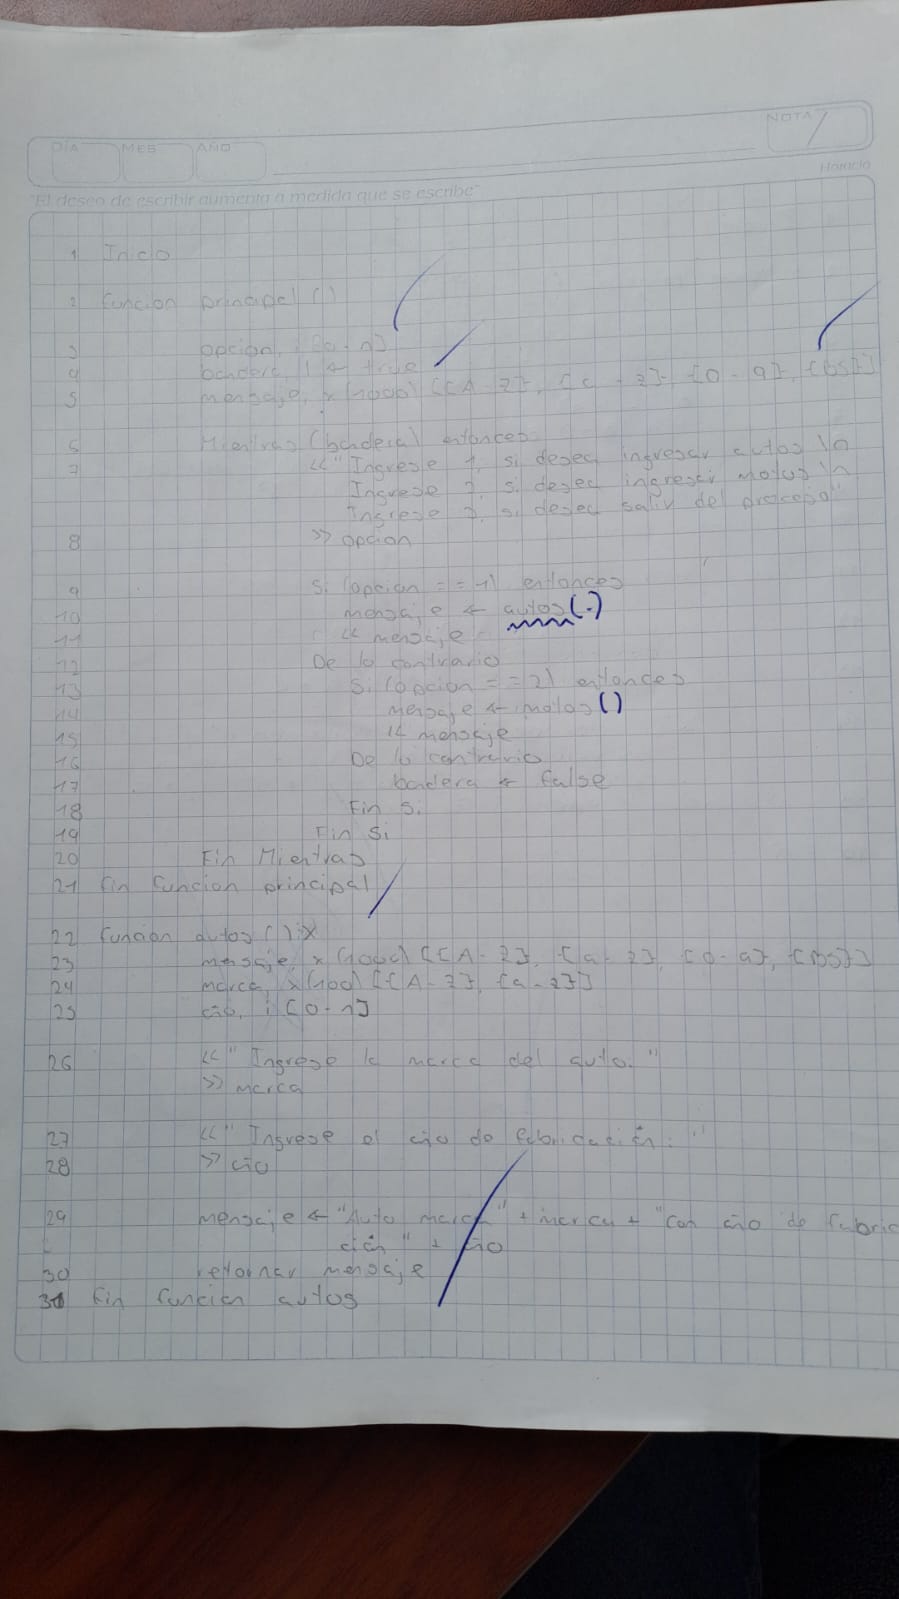 DÍA MES AÑO NOTA
Horacio
"El deseo de escribir aumenta a medida que se escribe"
1 Inicio
2 funcion principal ()
3 opcion, i [0-n]
4 bandera l ← true
5 mensaje, x (1000) [{A-Z}, {a-z}, {0-9}, {bs}]
6 Mientras (bandera) entonces
7 << "Ingrese 1, si desea ingresar autos \n
Ingrese 2, si desea ingresar motos \n
Ingrese 3, si desea salir del proceso"
8 >> opcion
9 Si (opcion == 1) entonces
10 mensaje ← autos(.)
11 << mensaje
12 De lo contrario
13 Si (opcion == 2) entonces
14 mensaje ← motos()
15 << mensaje
16 De lo contrario
17 bandera ← false
18 Fin Si
19 Fin Si
20 Fin Mientras
21 fin funcion principal
22 funcion autos ():x
23 mensaje, x (1000) [{A-Z}, {a-z}, {0-9}, {bs}]
24 marca, x(100) [{A-Z}, {a-z}]
25 año, i [0-n]
26 << "Ingrese la marca del auto: "
>> marca
27 << "Ingrese el año de fabricación: "
28 >> año
29 mensaje ← "Auto marca" + marca + "Con año de fabrica
ción" + año
30 retornar mensaje
31 fin función autos